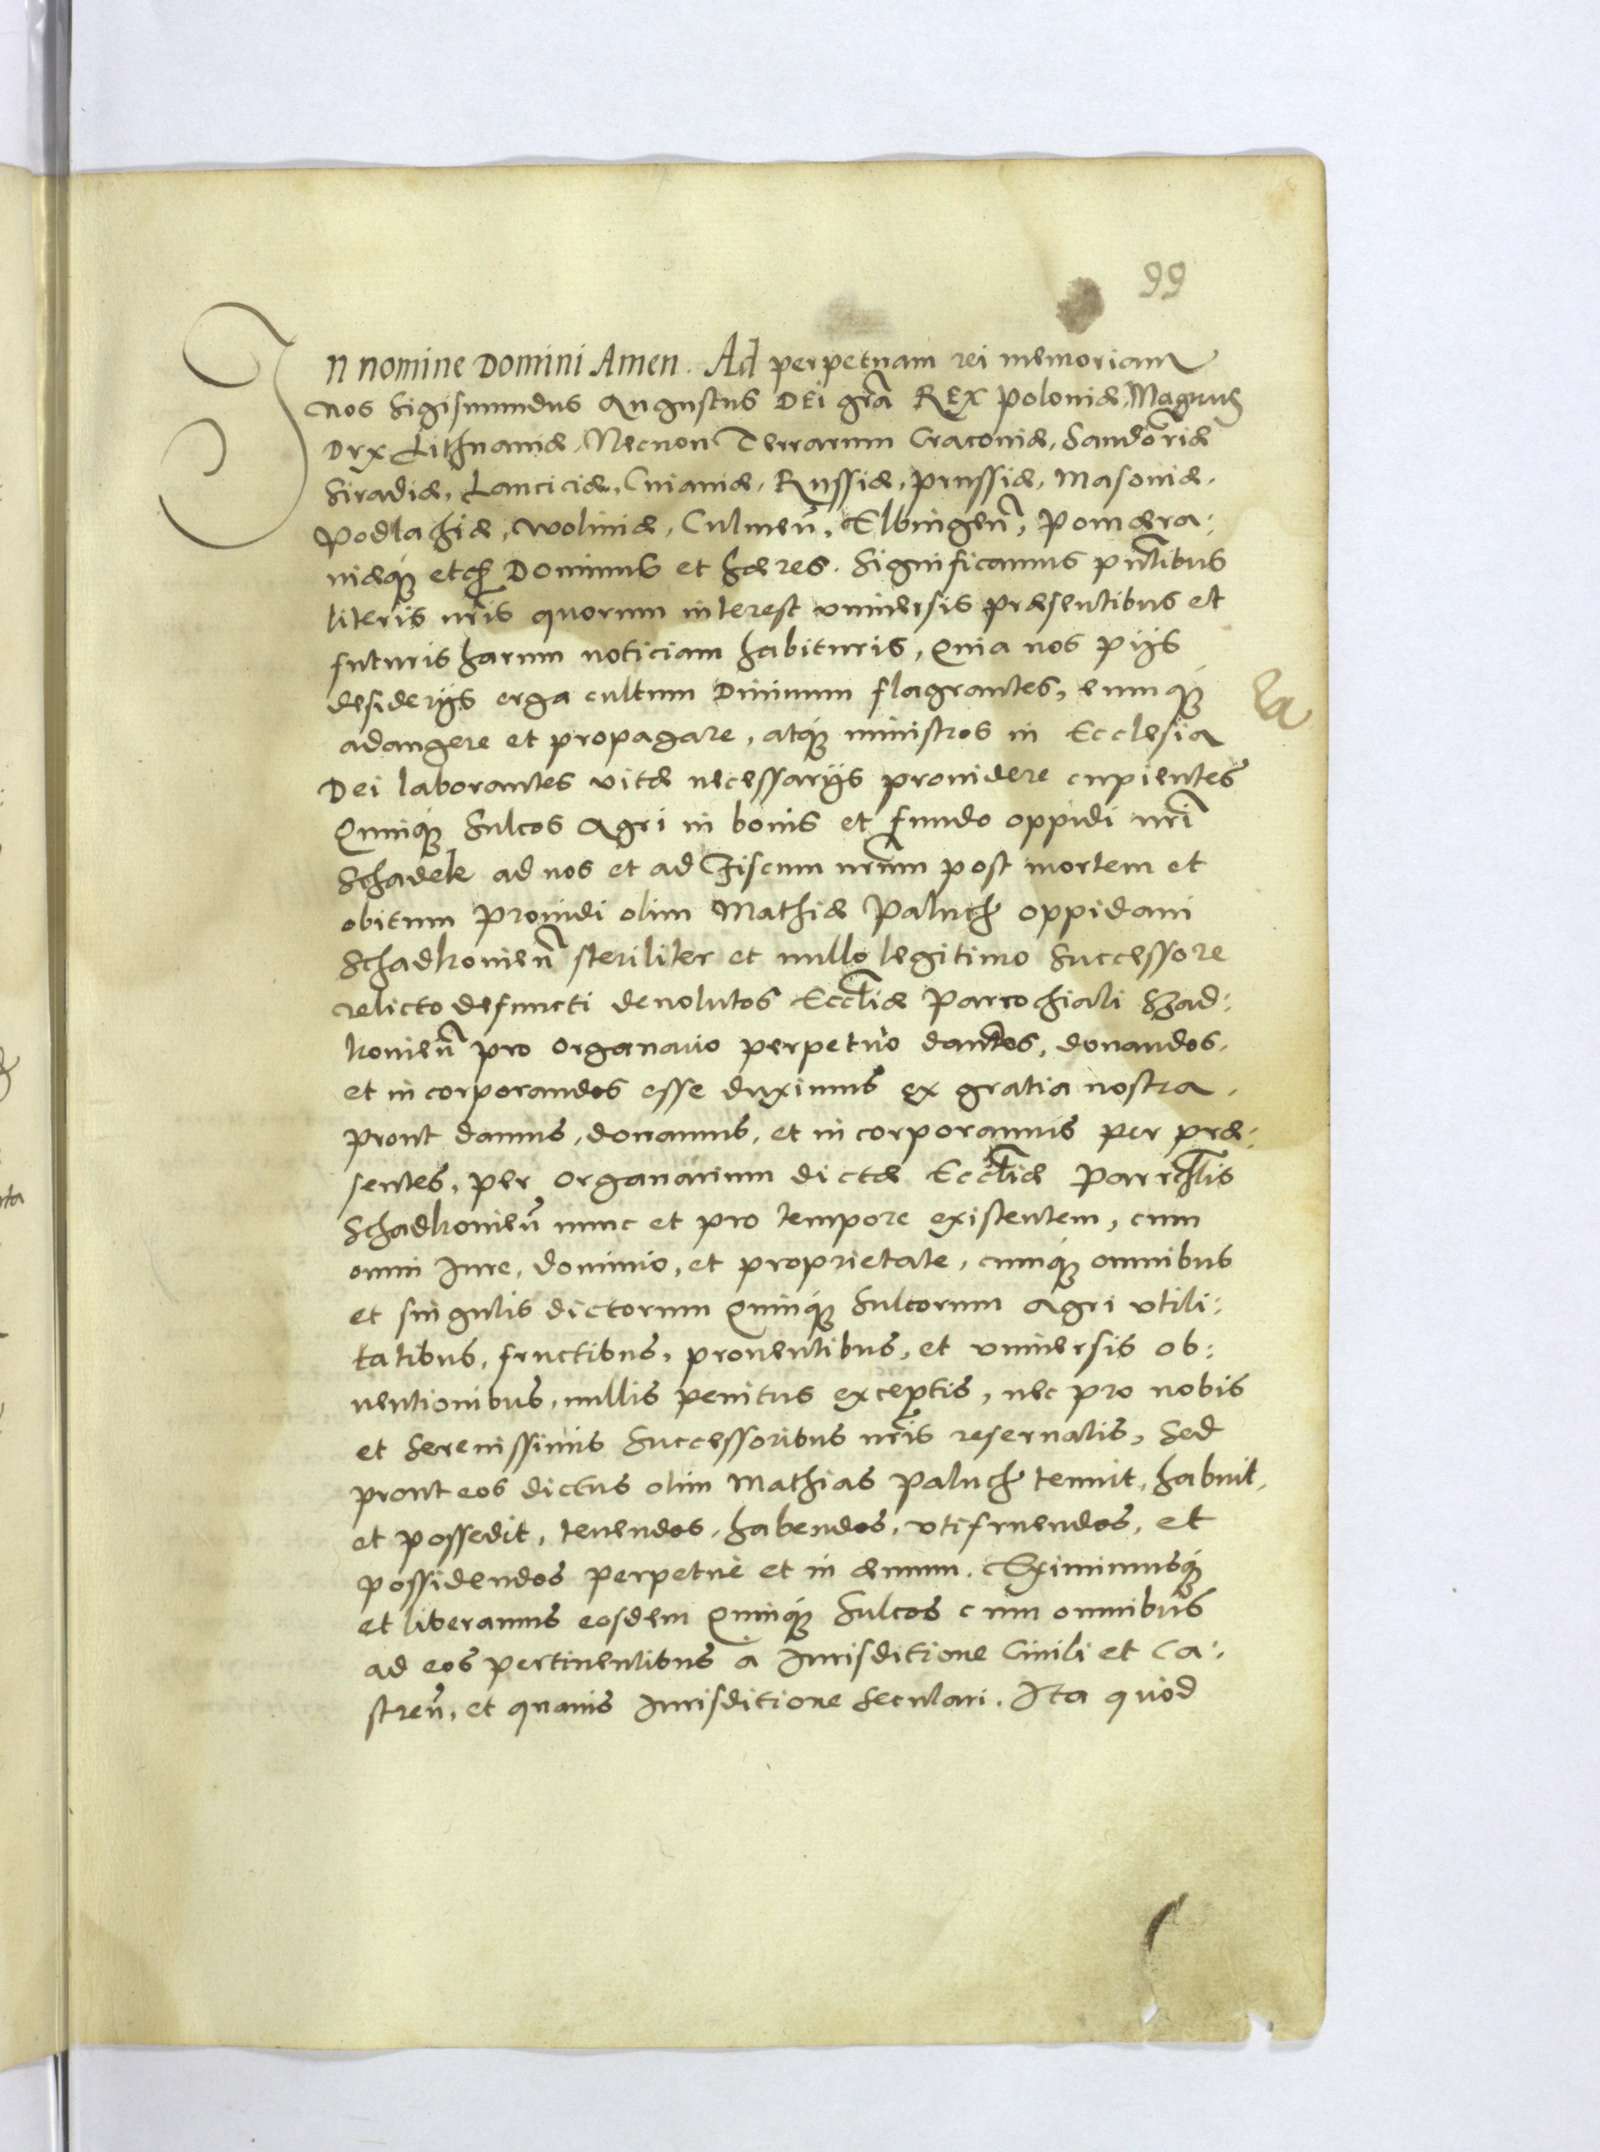 99
In nomine Domini Amen. Ad perpetuam rei memoriam
Nos Sigismundus Augustus Dei gr̃a Rex Poloniæ, Magnus
Dux Lithuaniæ, Necnon Terrarum Cracoviæ, Sandom̃riæ
Siradiæ, Lanciciæ, Cuiaviæ, Russiæ, Prussiæ, Masoviæ,
Podlachiæ, Woliniæ, Culmeñ, Elbingeñ, Pomæra:
niæq́ꝫ etc̃ Dominus et hæres. Significamus pñtibus
literis nr̃is quorum interest universis præsentibus et
futuris harum noticiam habituris, Quia nos pijs
desiderijs erga cultum Divinum flagrantes, eumq́ꝫ
adaugere et propagare, atq́ꝫ ministros in Ecclesia
Dei laborantes vitæ necessarijs providere cupientes
Quinq́ꝫ Sulcos Agri in bonis et fundo oppidi nr̃i
Schadek ad nos et ad Fiscum nr̃um post mortem et
obitum Providi olim Mathiæ Paluch oppidani
Schadkovieñ steriliter et nullo legitimo Successore
relicto defuncti devolutos Eccl̃iæ Parrochiali Shad:
kovieñ pro Organario perpetuò dandos, donandos,
et incorporandos esse duximus ex gratia nostra,
prout damus, donamus, et incorporamus per præ:
sentes, per Organarium dictæ Eccl̃iæ Parrchl̃is
Schadkovieñ nunc et pro tempore existentem, cum
omni Iure, dominio, et proprietate, cumq́ꝫ omnibus
et singulis dictorum Quinq́ꝫ Sulcorum Agri utili:
tatibus, fructibus, proventibus, et universis ob:
ventionibus, nullis penitus exceptis, nec pro nobis
et Serenissimis Successoribus nr̃is reservatis, Sed
prout eos dictus olim Mathias Paluch tenuit, habuit,
et possedit, tenendos, habendos, utifruendos, et
possidendos perpetuè et in ævum. Eximimusq́ꝫ
et liberamus eosdem Quinq́ꝫ Sulcos cum omnibus
ad eos pertinentibus à Iurisditione Civili et Ca:
streñ, et quavis Iurisditione Seculari. Ita quod